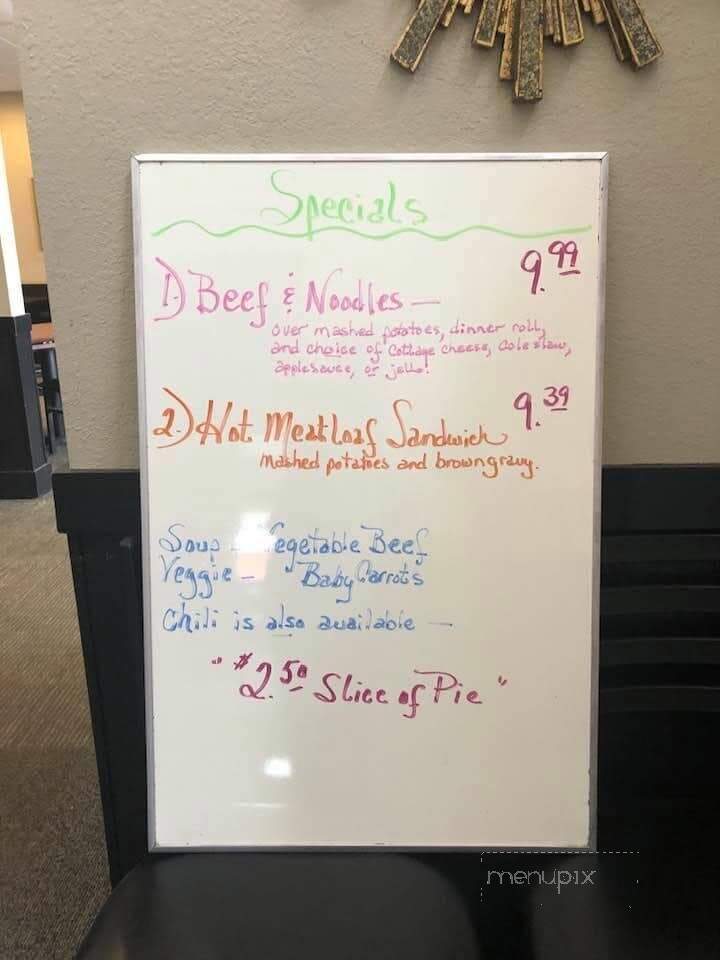 Specials
1.) Beef & Noodles — 9.99
over mashed potatoes, dinner roll,
and choice of Cottage cheese, Coleslaw,
applesauce, or jello!
2.) Hot Meatloaf Sandwich 9.39
Mashed potatoes and brown gravy.
Soup - Vegetable Beef
Veggie - Baby Carrots
Chili is also available —
"$2.50 Slice of Pie"
menupix